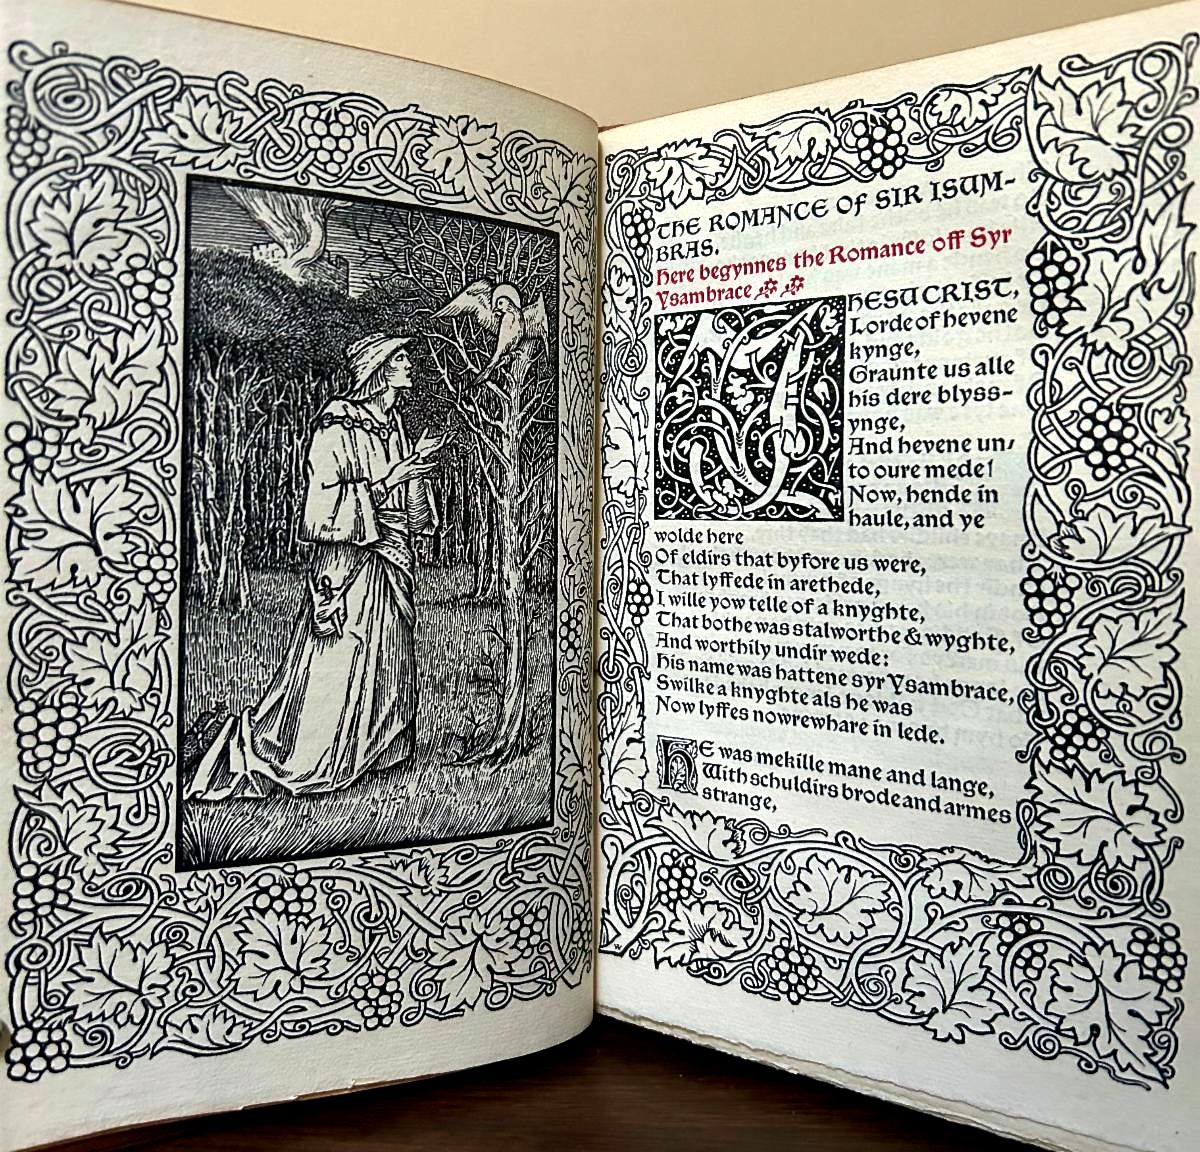 THE ROMANCE OF SIR ISUM-
BRAS.
Here begynnes the Romance off Syr
Ysambrace
JHESU CRIST,
Lorde of hevene
kynge,
Graunte us alle
his dere blyss-
ynge,
And hevene un/
to oure mede!
Now, hende in
haule, and ye
wolde here
Of eldirs that byfore us were,
That lyffede in arethede,
I wille yow telle of a knyghte,
That bothe was stalworthe & wyghte,
And worthily undir wede:
His name was hattene syr Ysambrace,
Swilke a knyghte als he was
Now lyffes nowrewhare in lede.
HE was mekille mane and lange,
With schuldirs brode and armes
strange,